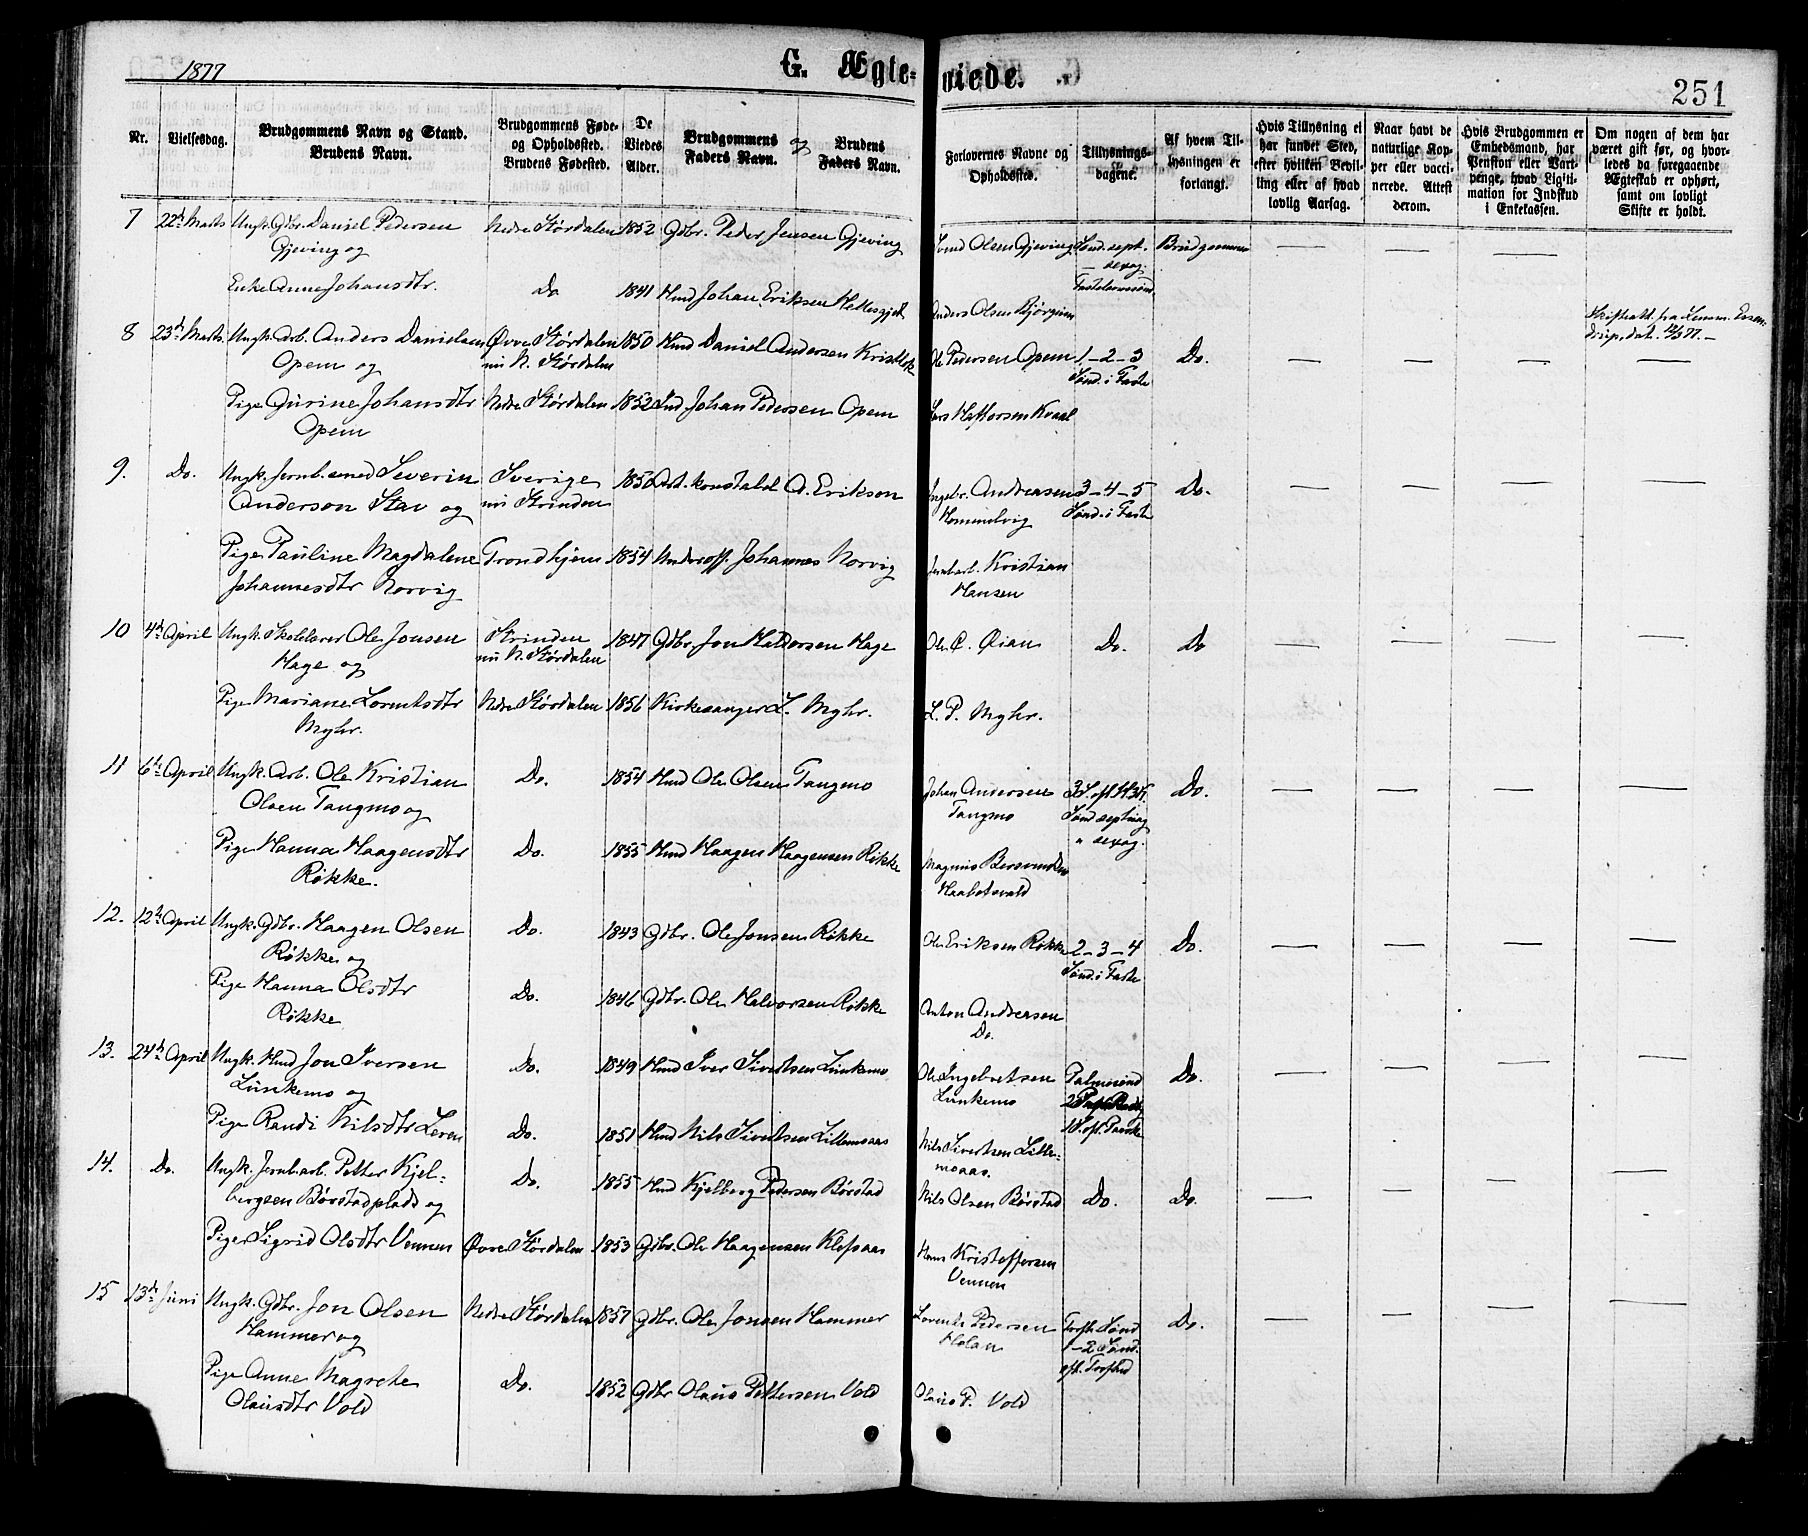 1877
G. Ægte-
viede.
251
Nr.
Vielsesdag.
Brudgommens Navn og Stand.
Brudens Navn.
Brudgommens Føde-
og Opholdssted.
Brudens Fødested.
De
Viedes
Alder.
Brudgommens
Faders Navn.
og
Brudens
Faders Navn.
Forlovernes Navne og
Opholdssted.
Tillysnings-
dagene.
Af hvem Til-
lysningen er
forlangt.
Hvis Tillysning ei
har fundet Sted,
efter hvilken Bevil-
ling eller af hvad
lovlig Aarsag.
Naar havt de
naturlige Kop-
per eller vacci-
nerede. Attest
derom.
Hvis Brudgommen er
Embedsmand, har
Pension eller Vart-
penge, hvad Ligiti-
mation for Indskud
i Enkekassen.
Om nogen af dem har
været gift før, og hvor-
ledes da foregaaende
Ægteskab er ophørt,
samt om lovligt
Skifte er holdt.
7 22de Marts Ungk. Gdbr. Daniel Pedersen Nedre Størdalen 1852 Gdbr. Peder Jensen Gjeving Svend Olsen Gjeving Sønd. sept. Brudgommen — — — 
Gjeving og — sexag.
Enke Anne Johansdtr. Do 1841 Hmd Johan Eriksen Anders Olsen Bjørgum Fastelavnssønd.
Skifteatt. fra Lensm.
8 23de Marts Ungk. Arb. Anders Danielsen Øvre Størdalen 1850 Hmd Daniel Andersen Ole Pedersen Opem 1-2-3 Do. — — — —
Opem og nu N. Størdalen Sønd. i Faste
Pige Gurine Johansdtr Nedre Størdalen 1852 Johan Pedersen Opem Lars Hafforsen Kvaal
Opem
9. Do. Ungk. Jernb.smed Severin Sverige 1850 Art. konstabel A. Erikson Ingebr. Andreasen 3-4-5 Do. — — — —
Anderson Stav og nu Strinden Hommelvig Sønd. i Faste
Pige Pauline Magdalene Trondhjem 1854 Underoff. Johannes Norvig Jernb.arb. Kristian
Johannesdtr Norvig Hansen
10 4de April Ungk. Skolelærer Ole Jonsen Strinden 1847 Gdbr. Jon Halvorsen Hage Ole C. Øian Do. Do — — — —
Hage og nu N. Størdalen
Pige Mariane Lorentsdtr Nedre Størdalen 1856 Kirkesanger L. Myhr. L. P. Myhr.
Myhr.
11 6te April Ungk. Arb. Ole Kristian Do. 1854 Hmd Ole Olsen Tangmo Johan Andersen Do. — — — —
Olsen Tangmo og Tangmo Sønd septuag
" sexag.
Pige Hanna Haagensdtr Do. 1855 Hmd Haagen Haagensen Røkke Magnus
Røkke.
12. 12te April Ungk. Gdbr. Haagen Olsen Do. 1843 Gdbr. Ole Jonsen Røkke Ole Eriksen Røkke 2-3-4 Do. — — — —
Røkke og Sønd. i Faste
Pige Hanna Olsdtr Do. 1846 Gdbr. Ole Halvorsen Røkke Anton Andersen
Røkke Do.
13. 24de April Ungk. Hmd Jon Iversen Do. 1849 Hmd Iver Sivertsen Lunkemo Ole Ingebretsen Palmesønd Do. — — — —
Lunkemo og Lunkemo
Pige Randi Nilsdtr Leren Do. 1851 Hmd Nils Sivertsen Lillemoaas Nils Sivertsen Lille-
moaas.
14. Do. Ungk. Jernb.arb. Petter Kjel- Do. 1855 Hmd Kjelberg Pedersen Børstad Nils Olsen Børstad Do. Do. — — — —
bergsen Børstadplads og
Pige Sigrid Olsdtr Vennen Øvre Størdalen 1853 Gdbr. Ole Haagensen Hans Kristoffersen
Vennen
15 13de Juni Ungk. Gdbr. Jon Olsen Nedre Størdalen 1857 Gdbr. Ole Jonsen Hammer Lorents Pedersen Do. — — — —
Hammer og 1-2 Sønd.
Pige Anne Magrete Do. 1852 Gdbr Olaus Pettersen Vold Olaus P. Vold
Olausdtr Vold